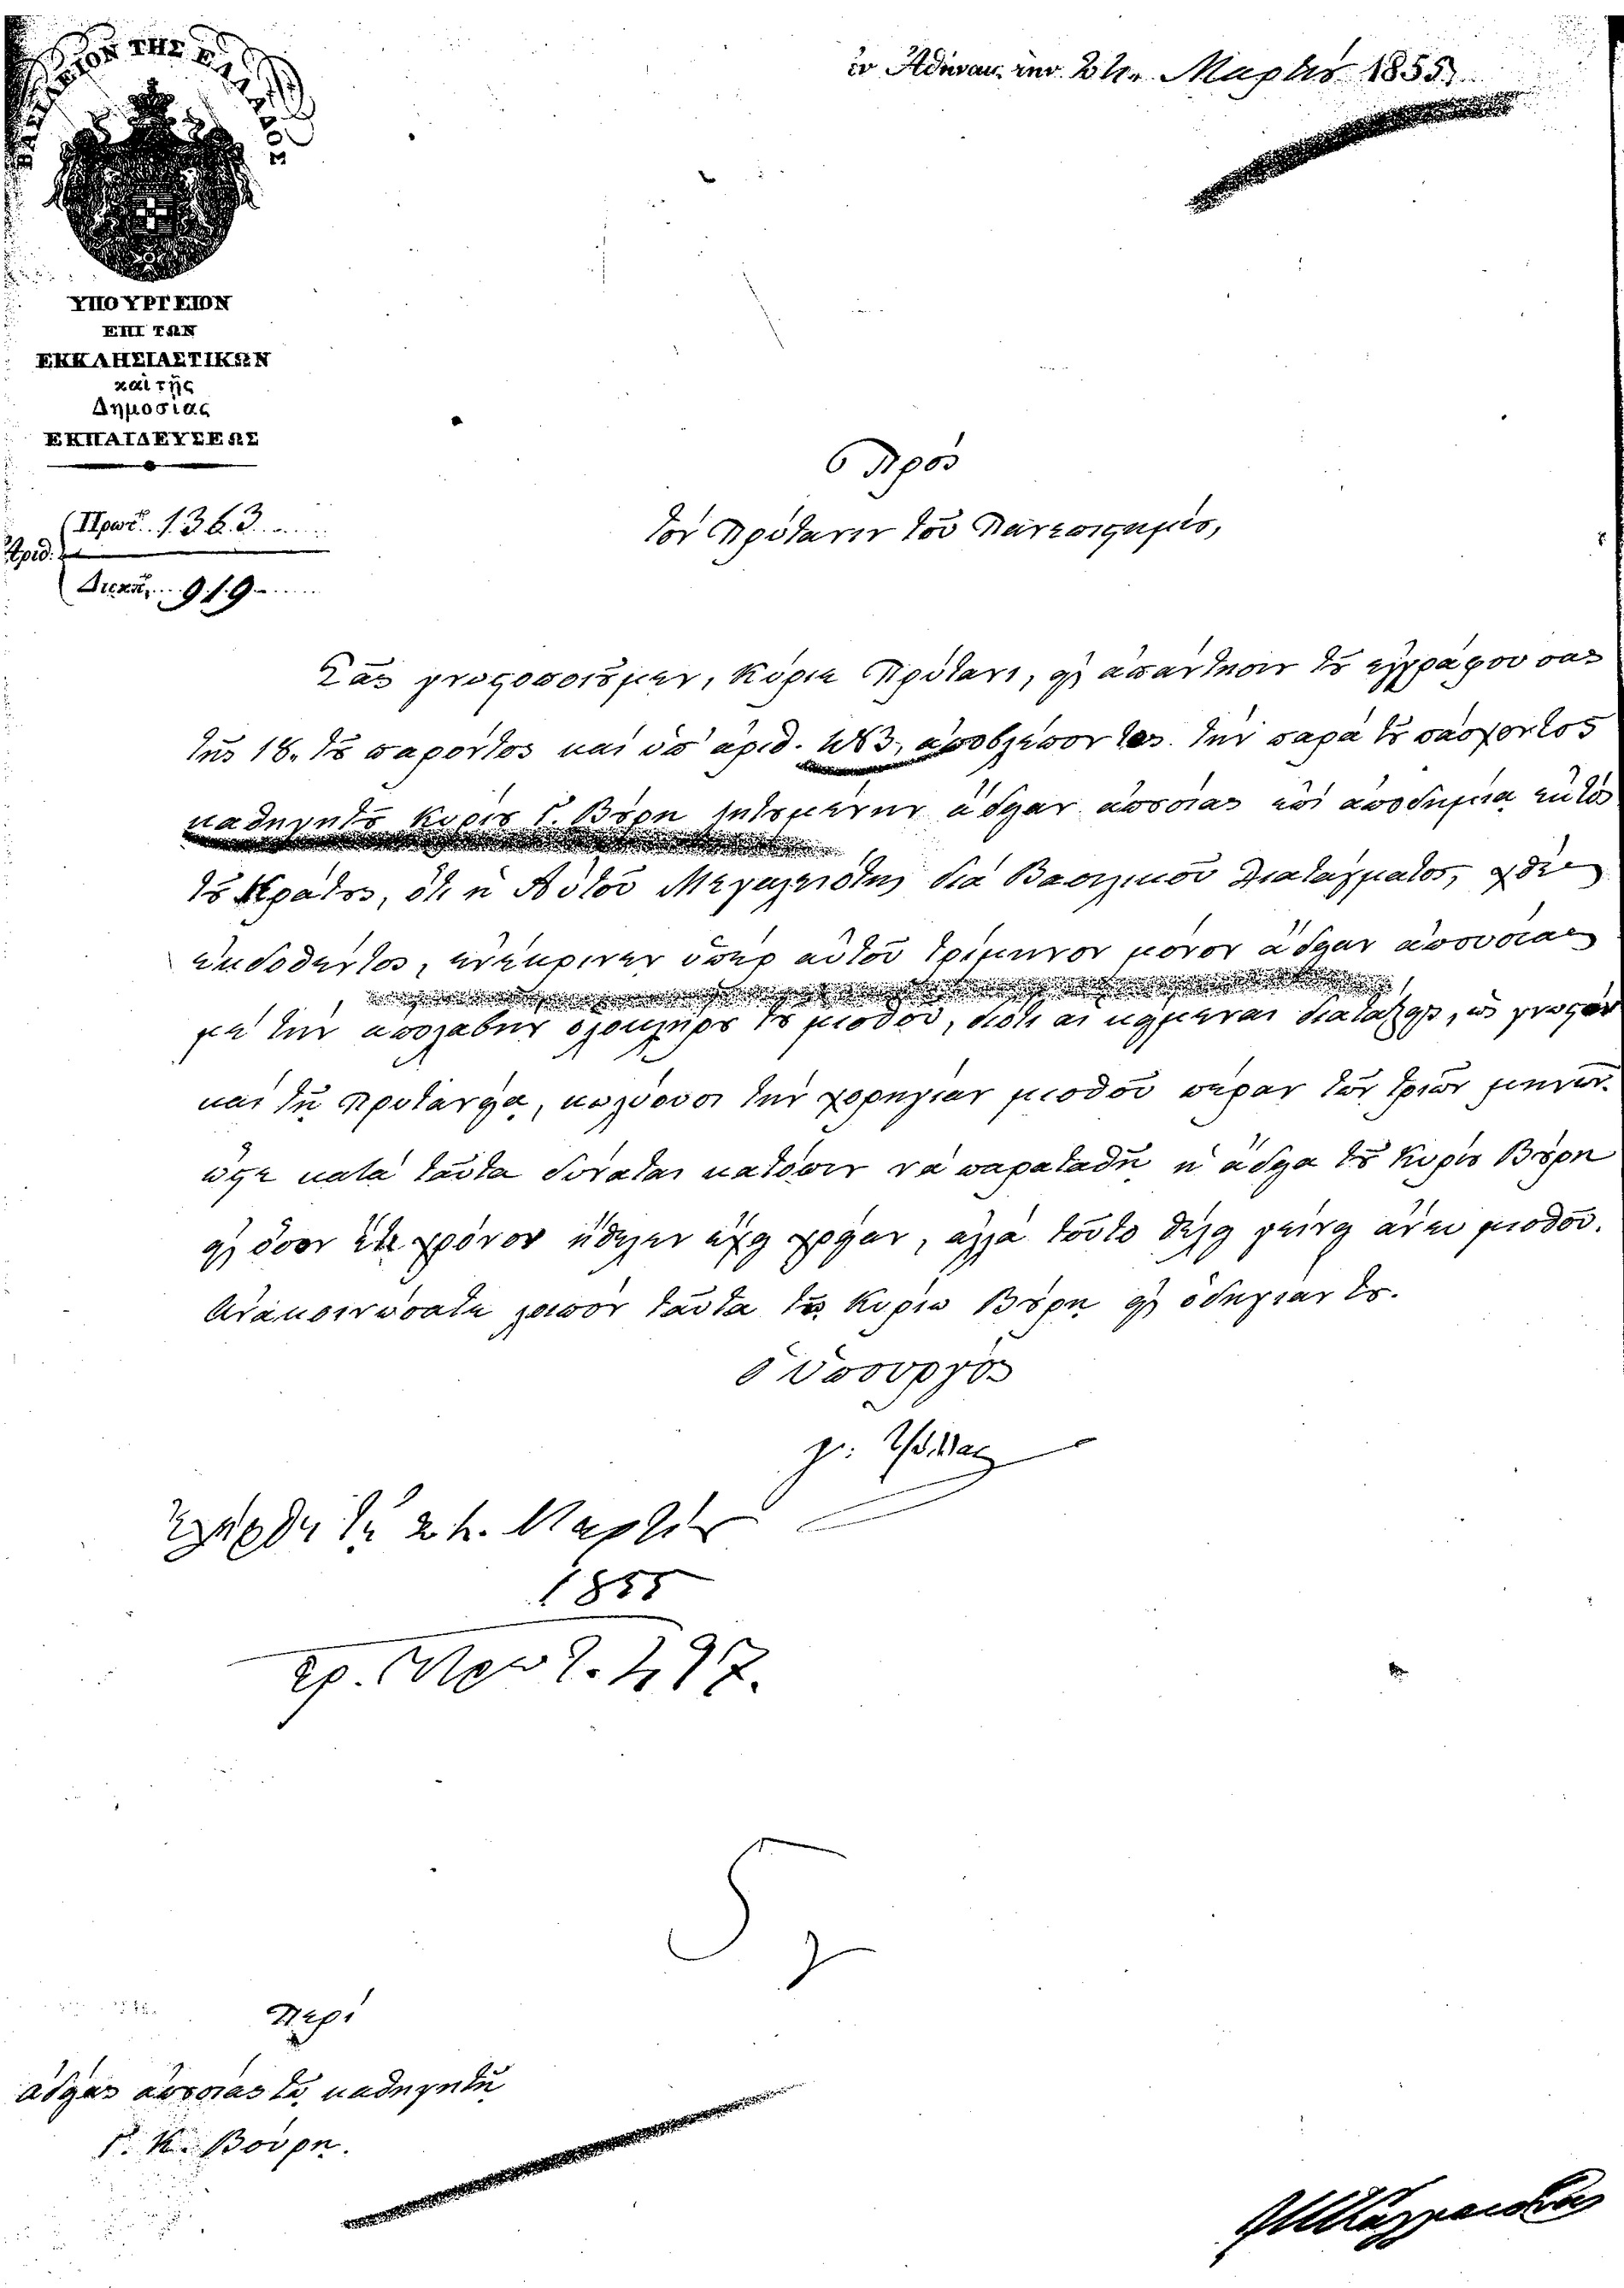 ΒΑΣΙΛΕΙΟΝ ΤΗΣ ΕΛΛΑΔΟΣ
ἐν Ἀθήναις τὴν 24 Μαρτίου 1855.
ΥΠΟΥΡΓΕΙΟΝ
ΕΠΙ ΤΩΝ
ΕΚΚΛΗΣΙΑΣΤΙΚΩΝ
καὶ τῆς
Δημοσίας
ΕΚΠΑΙΔΕΥΣΕΩΣ
Πρὸς
τὸν Πρύτανιν τοῦ Πανεπιστημίου,
Πρωτ. 1363
Ἀριθ.
Διεκπ. 919
Σᾶς γνωστοποιοῦμεν, Κύριε Πρύτανι, εἰς ἀπάντησιν τοῦ ἐγγράφου σας
τῆς 18. τοῦ παρόντος καὶ ὑπ' ἀριθ. 483, ἀποβλέποντος τὴν παρὰ τοῦ πάσχοντος
καθηγητοῦ Κυρίου Γ. Βούρη ζητουμένην ἄδειαν ἀπουσίας ἐπὶ ἀποδημίᾳ ἐκτὸς
τοῦ Κράτους, ὅτι ἡ Αὐτοῦ Μεγαλειότης διὰ Βασιλικοῦ Διατάγματος, χθὲς
ἐκδοθέντος, ἐνέκρινεν ὑπὲρ αὐτοῦ τρίμηνον μόνον ἄδειαν ἀπουσίας
μὲ τὴν ἀπολαβὴν ὁλοκλήρου τοῦ μισθοῦ, διότι αἱ κείμεναι διατάξεις, ὡς γνωστὸν
καὶ τῇ Πρυτανείᾳ, κωλύουσι τὴν χορηγίαν μισθοῦ πέραν τῶν τριῶν μηνῶν.
ὥστε κατὰ ταῦτα δύναται κατόπιν νὰ παραταθῇ ἡ ἄδεια τοῦ Κυρίου Βούρη
εἰς ὅσον ἔτι χρόνον ἤθελεν ἔχει χρείαν, ἀλλὰ τοῦτο θέλει γείνει ἄνευ μισθοῦ.
Ἀνακοινώσατε λοιπὸν ταῦτα τῷ Κυρίῳ Βούρῃ εἰς ὁδηγίαν του.
ὁ Ὑπουργὸς
Ἐλήφθη τῇ 24. Μαρτίου
1855
ἀρ. Πρωτ. 497.
Περὶ
ἀδείας ἀπουσίας τῷ καθηγητῇ
Γ. Κ. Βούρῃ.